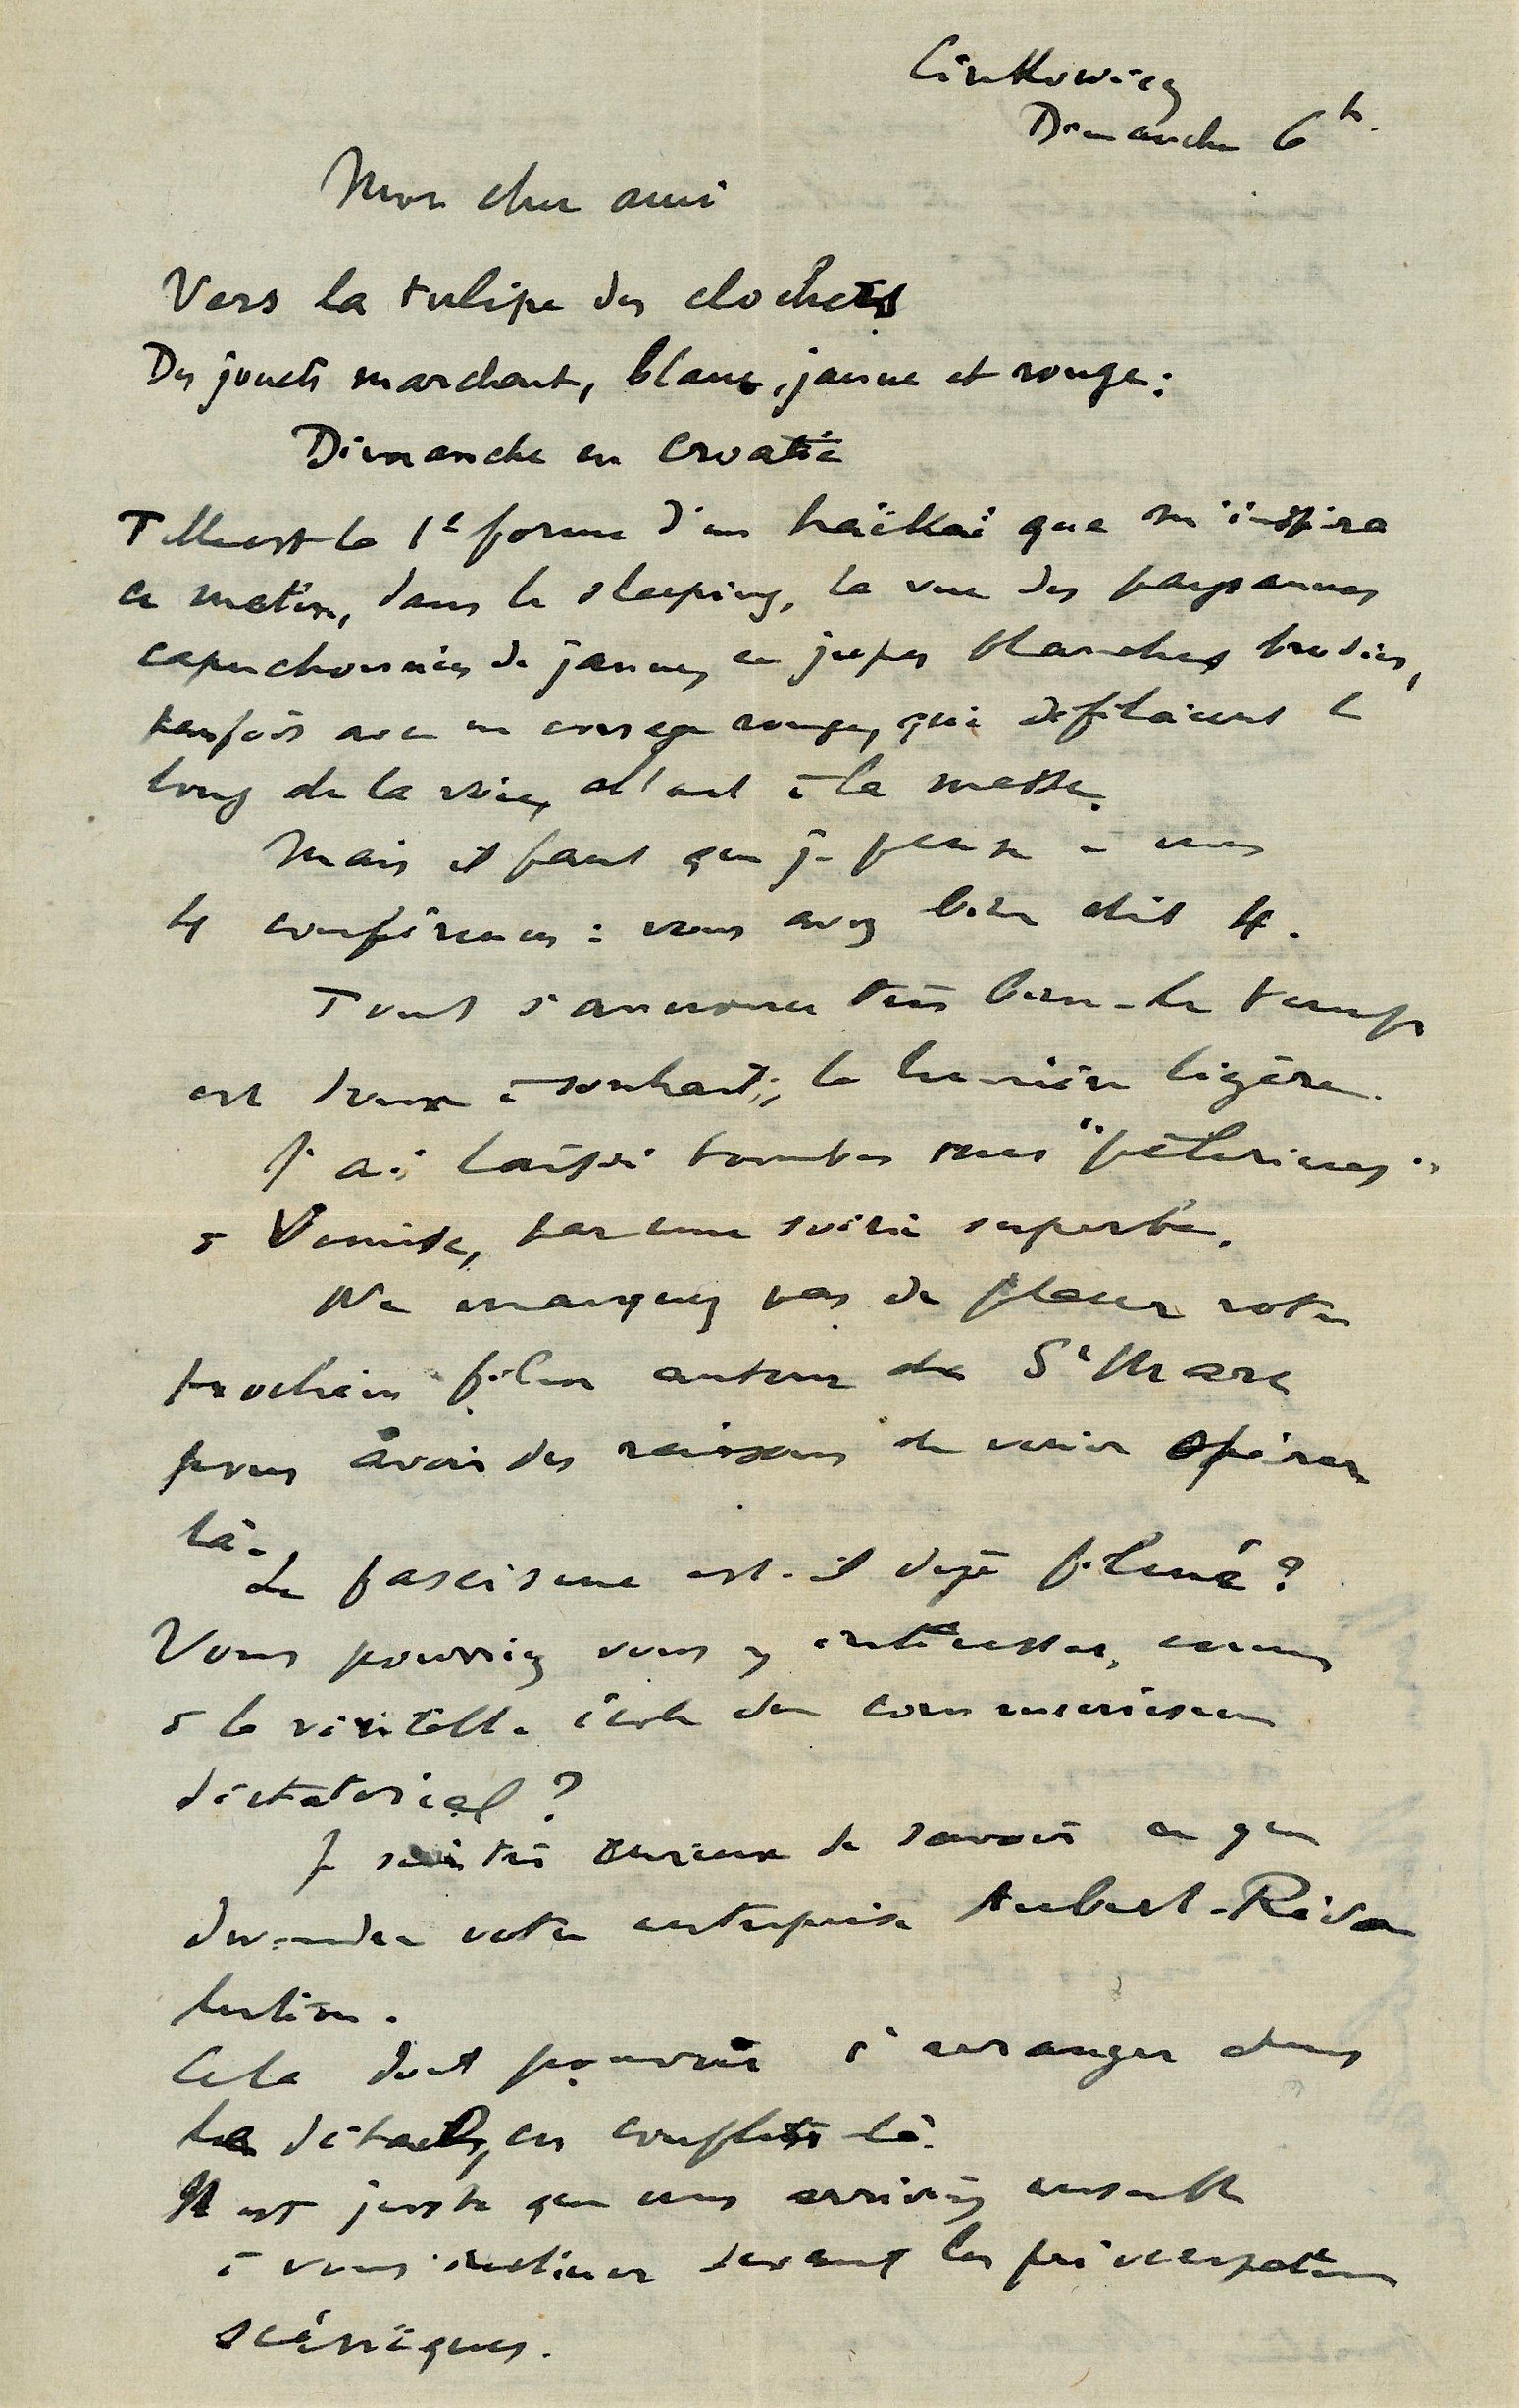 Dimanche 6 h.
Mon cher ami
Vers la tulipe des clochers
Des jouets marchent, blanc, jaune et rouge :
Dimanche en Croatie
Telle est la 1e forme d'un haïkaï que m'inspira
ce matin, dans le sleeping, la vue des paysannes
capuchonnées de jaune, en jupes blanches brodées,
parfois avec un corsage rouge, qui défilaient le
long de la voie, allant à la messe.
Mais il faut que je pense à mes
4 conférences : vous avez bien dit 4.
Tout s'annonce très bien - Le temps
est doux à souhait, la lumière légère.
J'ai laissé tomber mes "pèlerines"
à Venise, par une soirée superbe.
Ne manquez pas de placer votre
prochain film autour de St Marc
pour avoir des raisons de venir opérer
là.
Le fascisme est-il déjà filmé ?
Vous pourriez vous y intéresser, comme
à la véritable école du communisme
dictatorial ?
Je suis très curieux de savoir ce que
deviendra votre entreprise Aubert-Révo
lution.
Cela doit pouvoir s'arranger dans
le détail, ces conflits-là.
Il est juste que vous arriviez ensuite
à vous incliner devant les
scéniques.